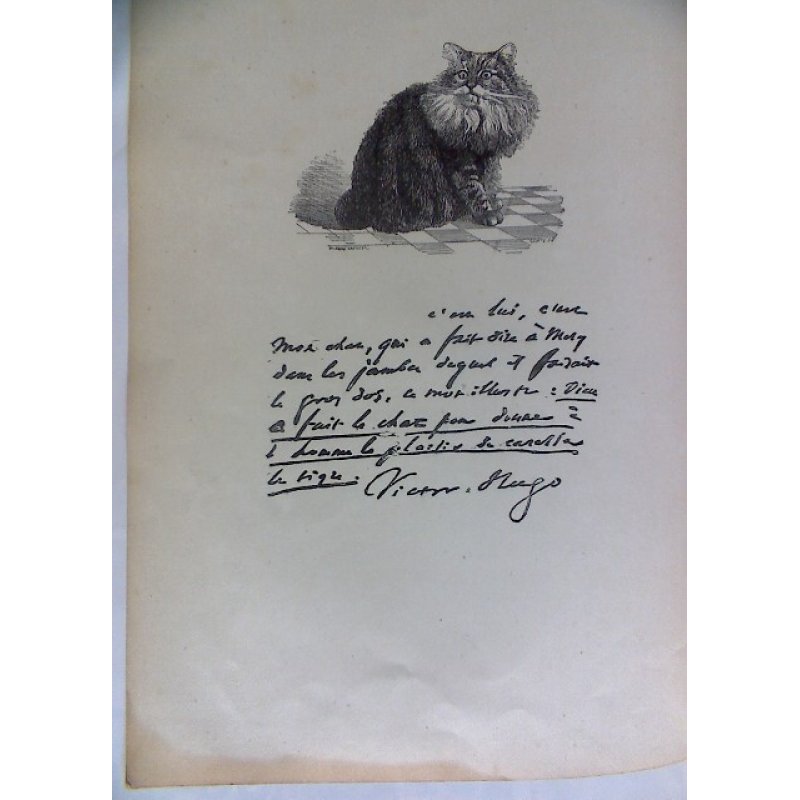 c'est lui, c'est
mon chat, qui a fait dire à Mery
dans les jambes duquel il faisait
le gros dos, ce mot illustre : Dieu
a fait le chat pour donner à
l'homme le plaisir de caresser
le tigre.
Victor Hugo